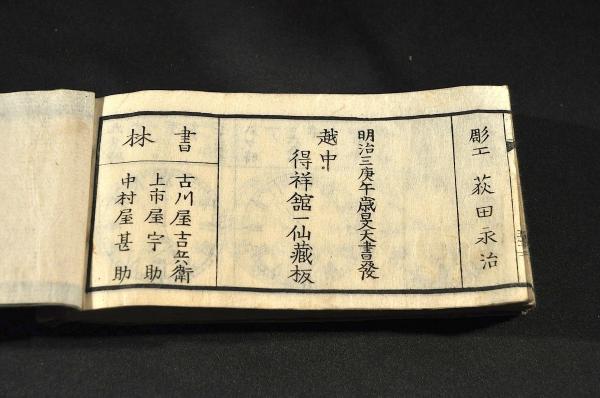 彫工 荻田永治
明治三庚午歳旻天書發
越中
得祥舘一仙藏板
書林
古川屋吉兵衛
上市屋宇助
中村屋甚助